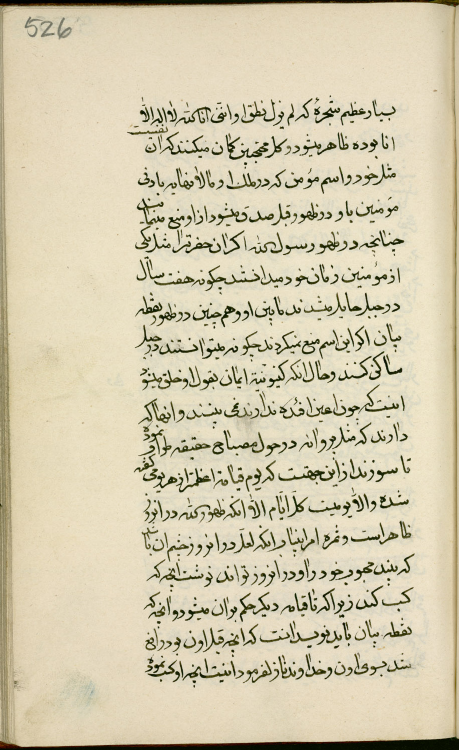 526
بسیار عظیم شجرهٔ که لم یزل نطق او اننی انا الله لا اله الا
انا بوده ظاهر میشود و کل محتجبین گمان میکنند که آن نفسیست
مثل خود و اسم مؤمن که در ملک او مالا نهایه بادنی
مؤمنین باو در ظهور قبل صدق میشود از او منع مینمایند
چنانچه در ظهور رسول الله اگر آن حضرت را مثل یکی
از مؤمنین زمان خود میدانستند چگونه هفت سال
در جبل حایل میشدند مابین او و هم چنین در ظهور نقطه
بیان اگر این اسم منع نمیکردند چگونه میتوانستند در جبل
ساکن کنند و حال آنکه کینونیة ایمان بقول او خلق میشود
اینست که چون اعین افئده ندارند نمی بینند و آنهائیکه
دارند که مثل پروانه در حول مصباح حقیقة طواف نموده
تا سوزند از این جهت که یوم قیامة اعظمتر از هر یومی گفته
شده والا یومیست کل ایام الا آنکه ظهور الله در آن روز
ظاهر است و ثمره امر اینباب آنکه لعل در آن روز زخیم آن باب
که بیند محبوب خود را و در آن روز تواند نوشت آنچه که
کسب کند زیرا که تا قیامة دیگر حکم بر آن میشود و آنچه که
نقطه بیان باید نویسد اینست که آنچه قبل اون بود راجع
شد بسوی اون و خداوند نازل فرمود اینست آنچه او کسب نموده